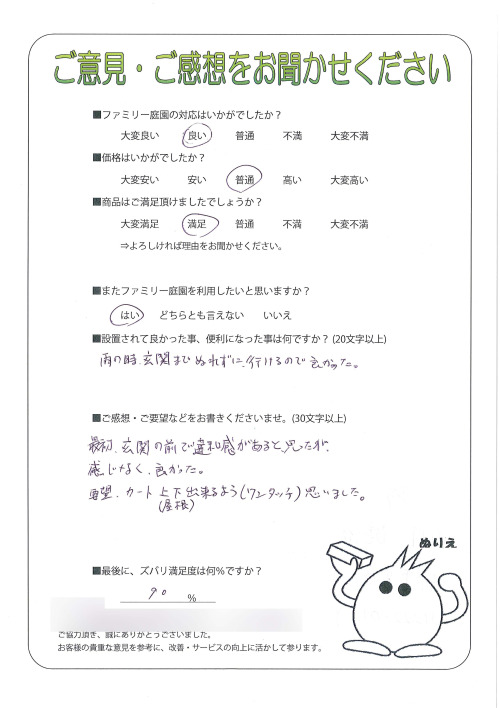 ご意見・ご感想をお聞かせください
■ファミリー庭園の対応はいかがでしたか？
大変良い 良い 普通 不満 大変不満
■価格はいかがでしたか？
大変安い 安い 普通 高い 大変高い
■商品はご満足頂けましたでしょうか？
大変満足 満足 普通 不満 大変不満
⇒よろしければ理由をお聞かせください。
■またファミリー庭園を利用したいと思いますか？
はい どちらとも言えない いいえ
■設置されて良かった事、便利になった事は何ですか？(20文字以上)
雨の時、玄関までぬれずに、行けるので良かった。
■ご感想・ご要望などをお書きくださいませ。(30文字以上)
最初、玄関の前で違和感があると思ったが、
感じなく、良かった。
要望、カート上下出来るよう(ワンタッチ)思いました。
(屋根)
ぬりえ
■最後に、ズバリ満足度は何％ですか？
90 %
ご協力頂き、誠にありがとうございました。
お客様の貴重な意見を参考に、改善・サービスの向上に活かして参ります。